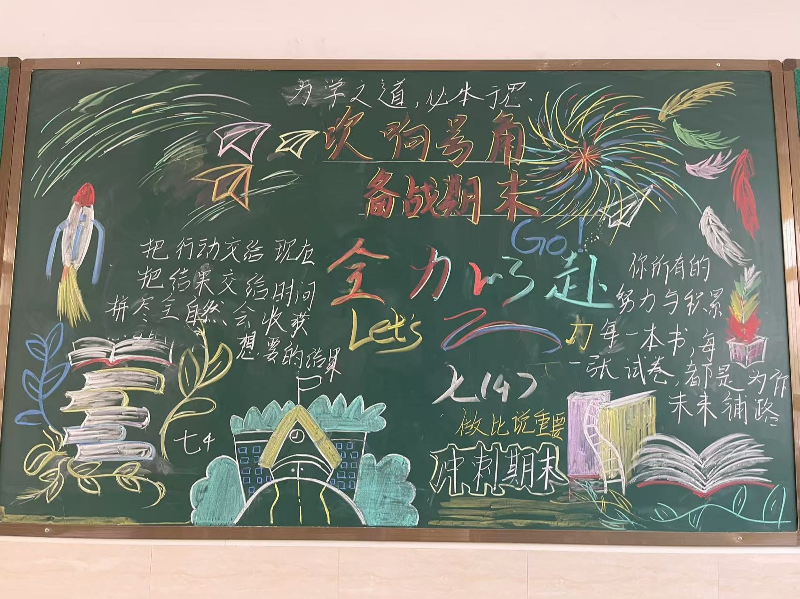 为学之道,必本于思.
吹响号角
备战期末
Go!
全力以赴
Let's
把行动交给现在
把结果交给时间
拼尽全自然会收获
想要的结果
七4
七(4)
做比说重要
冲刺期末
你所有的
努力与积累
力 每一本书,每
一张试卷,都是为你
未来铺路